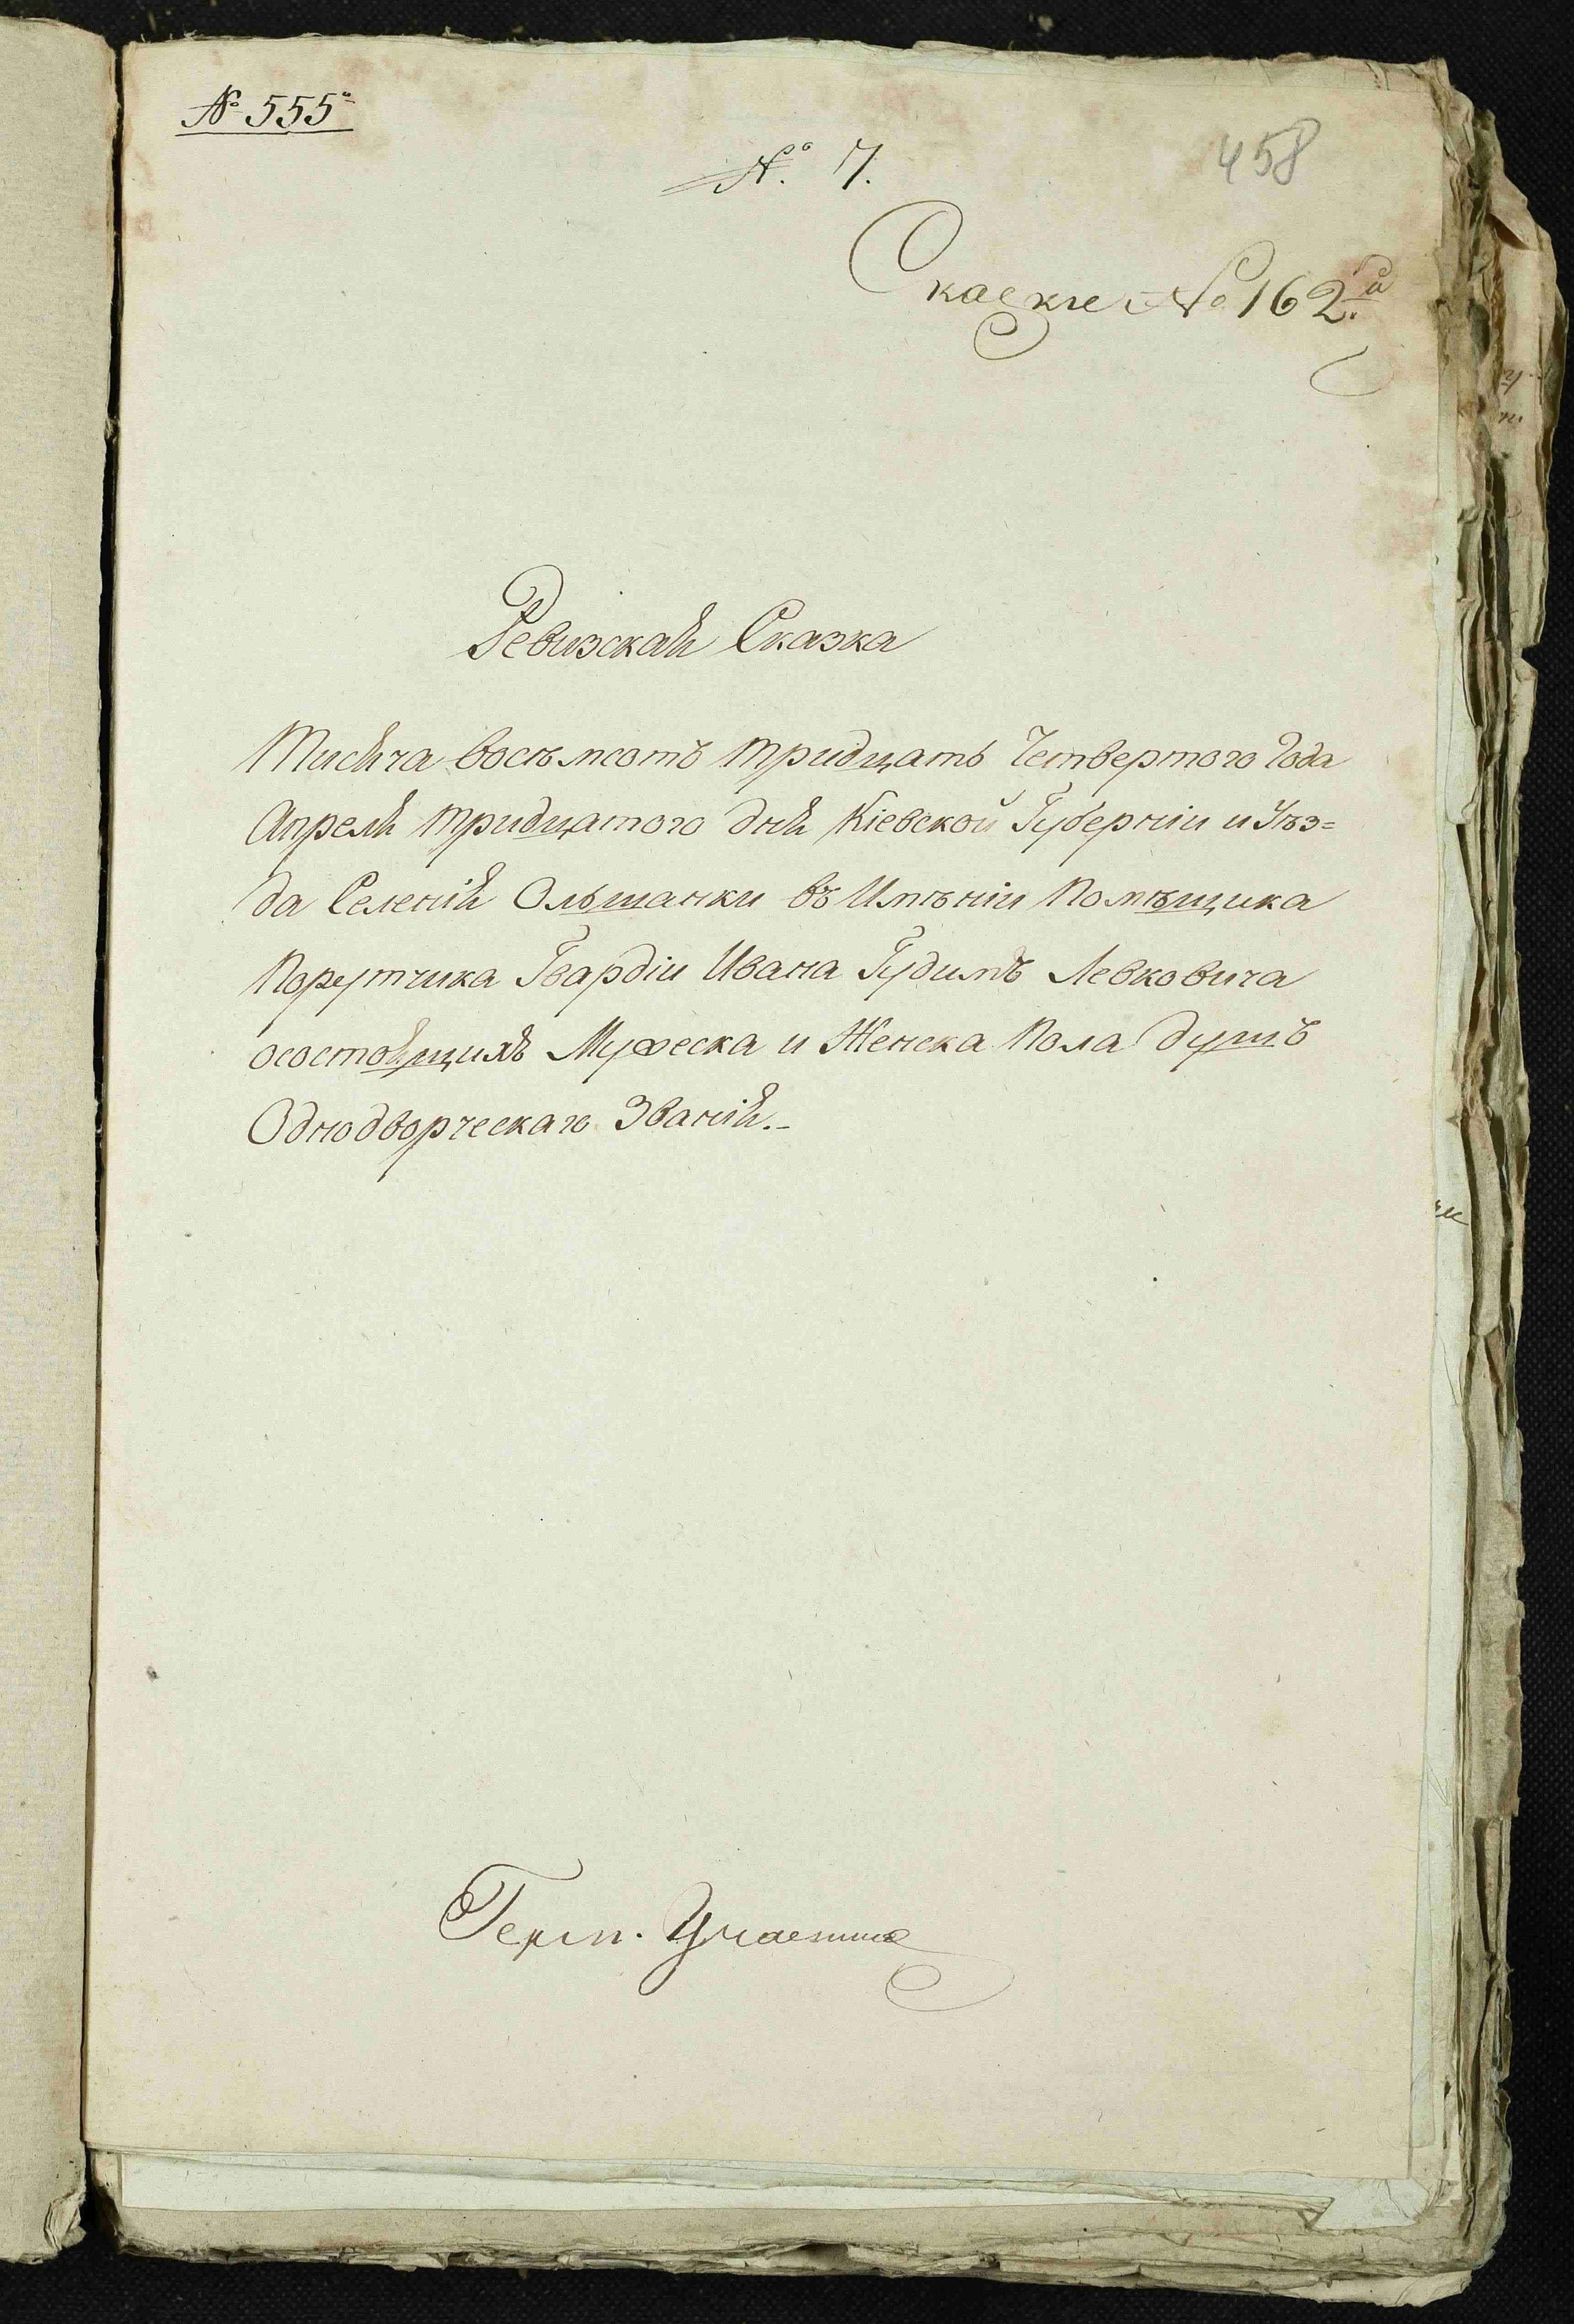 № 555
№. 7.
458
Сказке № 162.й
Ревизская Сказка
Тисяча восемсотъ тридцать Четвертого Года
Апреля тридцатого дня Кіевской Губерніи и Уѣз=
да Селенія Ольшанки въ Имѣніи Помѣщика
Порутчика Гвардіи Ивана Гудимъ Левковича
осостоящихъ Мужеска и Женска Пола душъ
Однодворческаго Званія.-